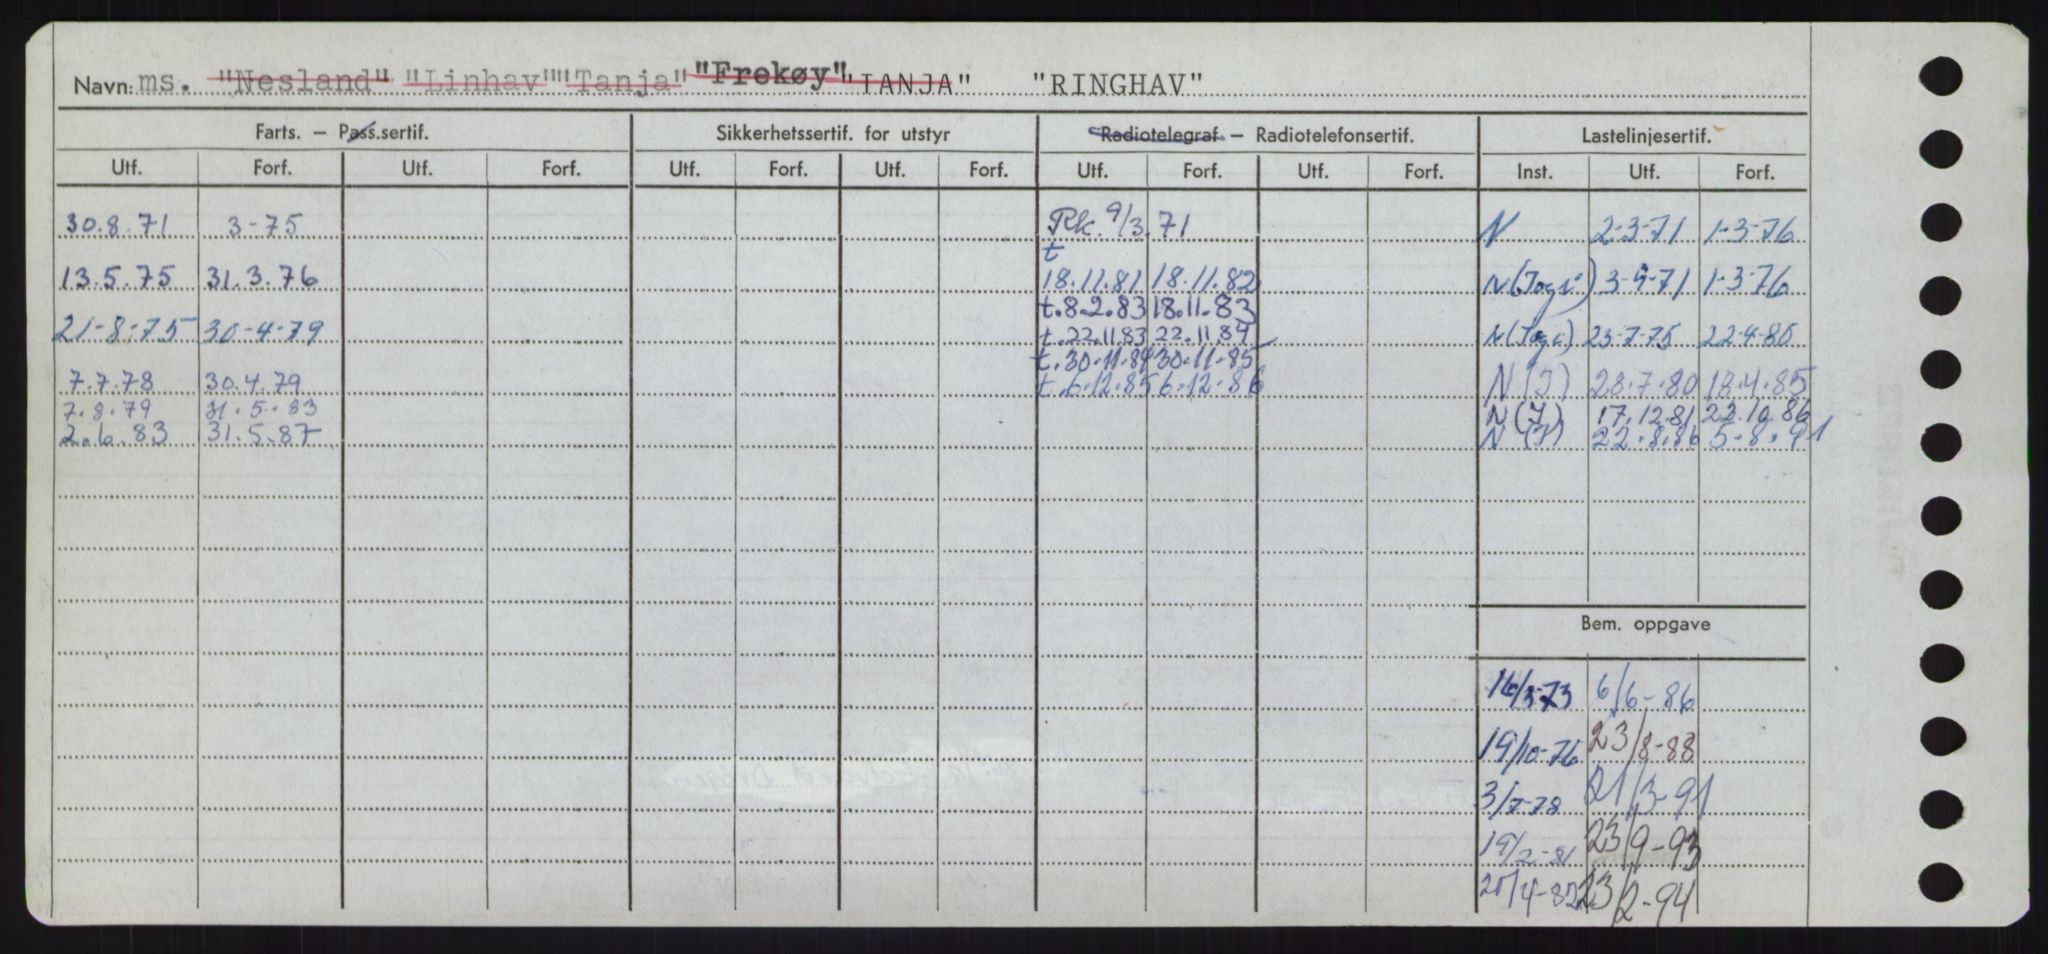 Navn: ms. "Nesland" "Linhav" "Tanja" "Frekøy" "TANJA" "RINGHAV"
Farts. – Pass.sertif. Sikkerhetssertif. for utstyr Radiotelegraf – Radiotelefonsertif. Lastelinjesertif.
Utf. Forf. Utf. Forf. Utf. Forf. Utf. Forf. Utf. Forf. Utf. Forf. Inst. Utf. Forf.
30.8.71 3-75 Rk. 9/3.71 N 2-3-71 1-3-76
t
13.5.75 31.3.76 18.11.81 18.11.82 N 3-9-71 1-3-76
t.8.2.83 18.11.83
21-8-75 30-4-79 t.22.11.83 22.11.84 N 23-7-75 22-4-80
t.30.11.84 30.11.85
7.7.78 30.4.79 t.6.12.85 6.12.86 N (I) 28.7.80 18.4.85
7.8.79 31.5.83 N (I) 17.12.81 22.10.86
2.6.83 31.5.87 N (I) 22.8.86 5.8.91
Bem. oppgave
16/3-73 6/6-86
19/10-76 23/8-88
3/7-78 21/3-91
19/2-81 23/9-93
20/4-82 23/2-94